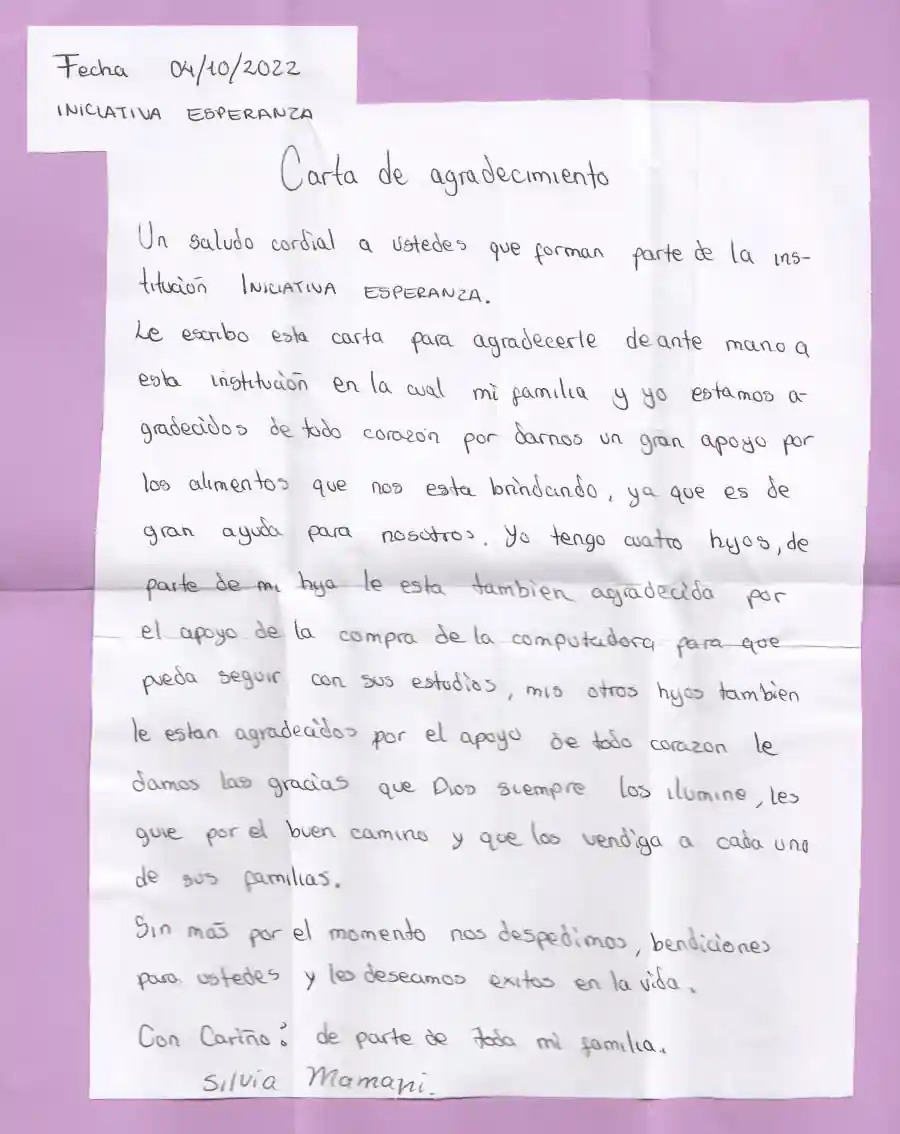 Fecha 04/10/2022
INICIATIVA ESPERANZA
Carta de agradecimiento
Un saludo cordial a ustedes que forman parte de la ins-
titución INICIATIVA ESPERANZA.
Le escribo esta carta para agradecerle de ante mano a
esta institución en la cual mi familia y yo estamos a-
gradecidos de todo corazón por darnos un gran apoyo por
los alimentos que nos esta brindando, ya que es de
gran ayuda para nosotros. Yo tengo cuatro hijos, de
parte de mi hija le esta tambien agradecida por
el apoyo de la compra de la computadora para que
pueda seguir con sus estudios, mis otros hijos tambien
le estan agradecidos por el apoyo de todo corazon le
damos las gracias que Dios siempre los ilumine, les
guie por el buen camino y que los vendiga a cada uno
de sus familias.
Sin más por el momento nos despedimos, bendiciones
para ustedes y les deseamos exitos en la vida.
Con Cariño: de parte de toda mi familia.
Silvia Mamani.